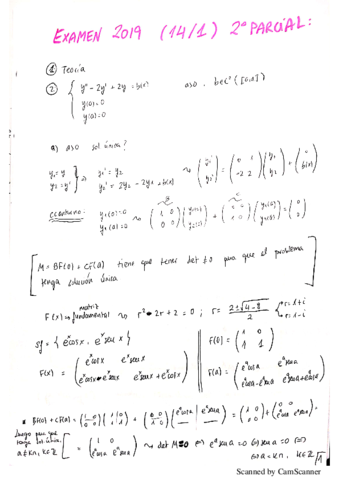 EXAMEN 2019 (14/1) 2º PARCIAL:
① Teoría
② { y'' - 2y' + 2y = b(x)   a>0   b∈C([0,a])
y(0)=0
y(a)=0
a) a>0 sol única?
y₁=y
y₂=y' } y₁' = y₂
y₂' = 2y₂ - 2y₁ + b(x) ⇝ (y₁' y₂') = (0 1 / -2 2)(y₁ y₂) + (0 b(x))
y₁(0)=0
y₁(a)=0 ⇝ (1 0 / 0 0)(y₁(0) y₂(0)) + (0 0 / 1 0)(y₁(a) y₂(a)) = (0
[ M = BF(0) + CF(a) tiene que tener det ≠0 para que el problema
tenga solución única
F(x) matriz fundamental ⇝ r² - 2r + 2 = 0 ; r =
sf = { eˣcosx, eˣsenx }
F(0) = (1 0 / 1 1)
F(x) = (eˣcosx eˣsenx / eˣcosx - eˣsenx eˣsenx + eˣcosx)
F(a) = (eᵃcosa eᵃsena / eᵃcosa - eᵃsena eᵃsena + eᵃcosa)
BF(0) + CF(a) = (1 0 / 0 0)(1 0 / 1 1) + (0 0 / 1 0)(eᵃcosa eᵃsena) = (1 0 / 0 0) + (0 0 / eᵃcosa eᵃsena) =
Luego para que
a≠kπ, k∈Z [ = (1 0 / eᵃcosa eᵃsena) ⇝ det M=0 ⇔ eᵃsena = 0 ⇔ sena = 0 ⇔
⇔ a = kπ, k∈Z
1
Scanned by CamScanner